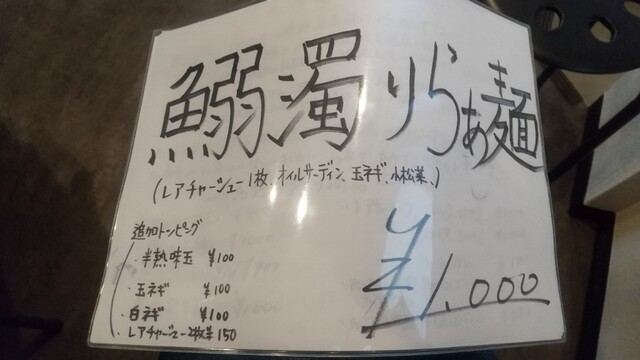 鰯濁りらぁ麺
(レアチャーシュー1枚、オイルサーディン、玉ネギ、小松菜、)
¥1.000
追加トッピング
・半熟味玉 ¥100
・玉ネギ ¥100
・白ネギ ¥100
・レアチャーシュー2枚 ¥150